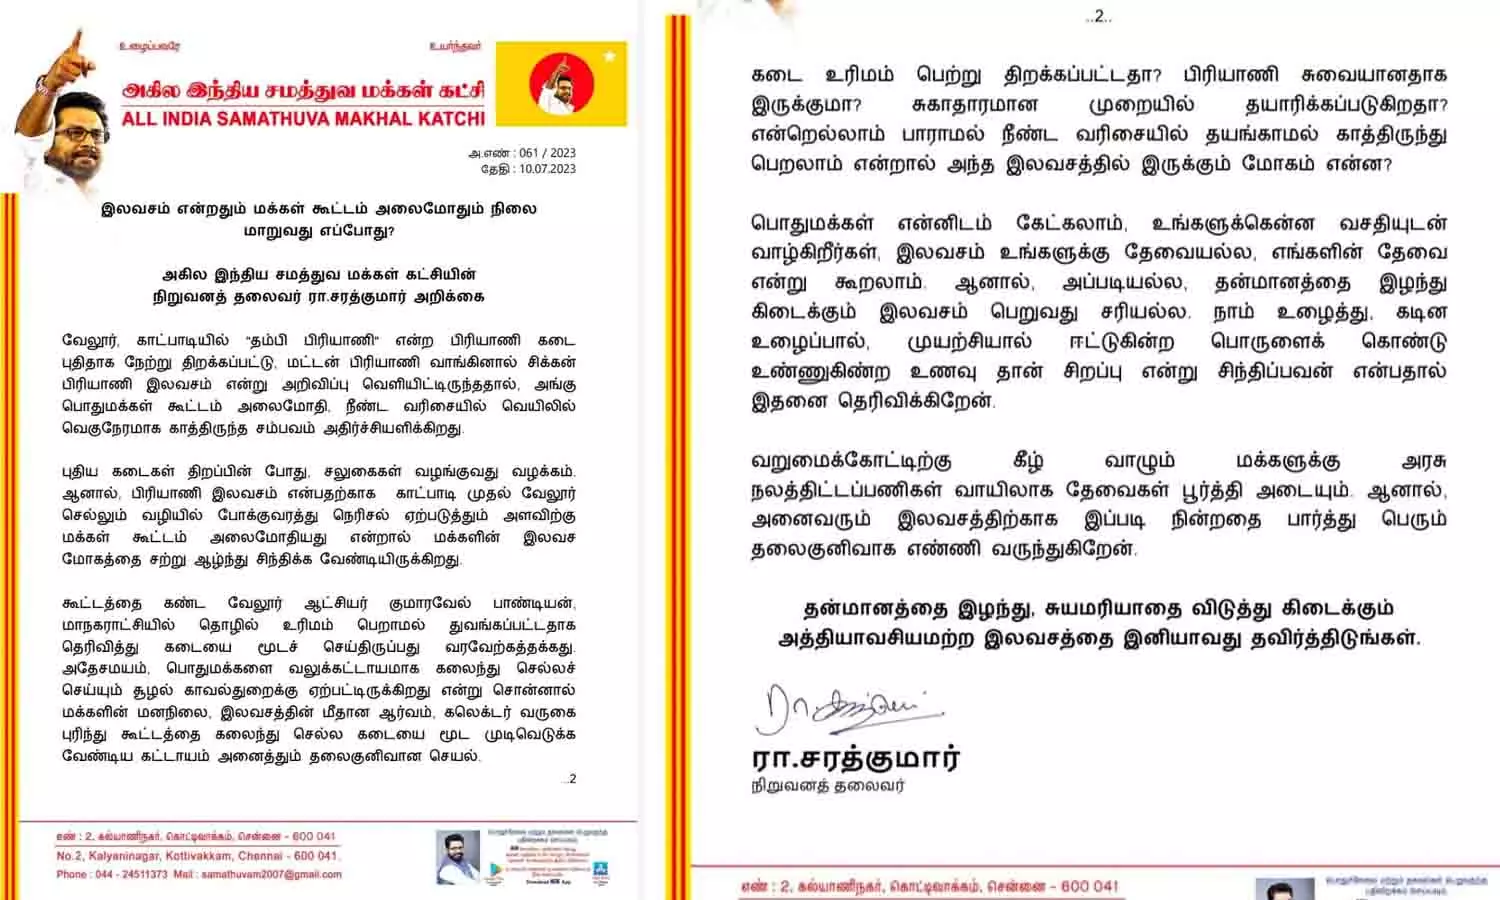 உழைப்பவரே உயர்ந்தவர்
அகில இந்திய சமத்துவ மக்கள் கட்சி
ALL INDIA SAMATHUVA MAKHAL KATCHI
அ.எண் : 061 / 2023
தேதி : 10.07.2023
இலவசம் என்றதும் மக்கள் கூட்டம் அலைமோதும் நிலை
மாறுவது எப்போது?
அகில இந்திய சமத்துவ மக்கள் கட்சியின்
நிறுவனத் தலைவர் ரா.சரத்குமார் அறிக்கை
வேலூர், காட்பாடியில் "தம்பி பிரியாணி" என்ற பிரியாணி கடை
புதிதாக நேற்று திறக்கப்பட்டு, மட்டன் பிரியாணி வாங்கினால் சிக்கன்
பிரியாணி இலவசம் என்று அறிவிப்பு வெளியிட்டிருந்ததால், அங்கு
பொதுமக்கள் கூட்டம் அலைமோதி, நீண்ட வரிசையில் வெயிலில்
வெகுநேரமாக காத்திருந்த சம்பவம் அதிர்ச்சியளிக்கிறது.
புதிய கடைகள் திறப்பின் போது, சலுகைகள் வழங்குவது வழக்கம்.
ஆனால், பிரியாணி இலவசம் என்பதற்காக காட்பாடி முதல் வேலூர்
செல்லும் வழியில் போக்குவரத்து நெரிசல் ஏற்படுத்தும் அளவிற்கு
மக்கள் கூட்டம் அலைமோதியது என்றால் மக்களின் இலவச
மோகத்தை சற்று ஆழ்ந்து சிந்திக்க வேண்டியிருக்கிறது.
கூட்டத்தை கண்ட வேலூர் ஆட்சியர் குமாரவேல் பாண்டியன்,
மாநகராட்சியில் தொழில் உரிமம் பெறாமல் துவங்கப்பட்டதாக
தெரிவித்து கடையை மூடச் செய்திருப்பது வரவேற்கத்தக்கது.
அதேசமயம், பொதுமக்களை வலுக்கட்டாயமாக கலைந்து செல்லச்
செய்யும் சூழல் காவல்துறைக்கு ஏற்பட்டிருக்கிறது என்று சொன்னால்
மக்களின் மனநிலை, இலவசத்தின் மீதான ஆர்வம், கலெக்டர் வருகை
புரிந்து கூட்டத்தை கலைந்து செல்ல கடையை மூட முடிவெடுக்க
வேண்டிய கட்டாயம் அனைத்தும் தலைகுனிவான செயல்.
...2
எண் : 2, கல்யாணிநகர், கொட்டிவாக்கம், சென்னை - 600 041
No.2, Kalyaninagar, Kottivakkam, Chennai - 600 041.
Phone : 044 - 24511373 Mail : samathuvam2007@gmail.com
..2..
கடை உரிமம் பெற்று திறக்கப்பட்டதா? பிரியாணி சுவையானதாக
இருக்குமா? சுகாதாரமான முறையில் தயாரிக்கப்படுகிறதா?
என்றெல்லாம் பாராமல் நீண்ட வரிசையில் தயங்காமல் காத்திருந்து
பெறலாம் என்றால் அந்த இலவசத்தில் இருக்கும் மோகம் என்ன?
பொதுமக்கள் என்னிடம் கேட்கலாம், உங்களுக்கென்ன வசதியுடன்
வாழ்கிறீர்கள், இலவசம் உங்களுக்கு தேவையல்ல, எங்களின் தேவை
என்று கூறலாம். ஆனால், அப்படியல்ல, தன்மானத்தை இழந்து
கிடைக்கும் இலவசம் பெறுவது சரியல்ல. நாம் உழைத்து, கடின
உழைப்பால், முயற்சியால் ஈட்டுகின்ற பொருளைக் கொண்டு
உண்ணுகிண்ற உணவு தான் சிறப்பு என்று சிந்திப்பவன் என்பதால்
இதனை தெரிவிக்கிறேன்.
வறுமைக்கோட்டிற்கு கீழ் வாழும் மக்களுக்கு அரசு
நலத்திட்டப்பணிகள் வாயிலாக தேவைகள் பூர்த்தி அடையும். ஆனால்,
அனைவரும் இலவசத்திற்காக இப்படி நின்றதை பார்த்து பெரும்
தலைகுனிவாக எண்ணி வருந்துகிறேன்.
தன்மானத்தை இழந்து, சுயமரியாதை விடுத்து கிடைக்கும்
அத்தியாவசியமற்ற இலவசத்தை இனியாவது தவிர்த்திடுங்கள்.
ரா.சரத்குமார்
நிறுவனத் தலைவர்
எண் : 2, கல்யாணிநகர், கொட்டிவாக்கம், சென்னை - 600 041